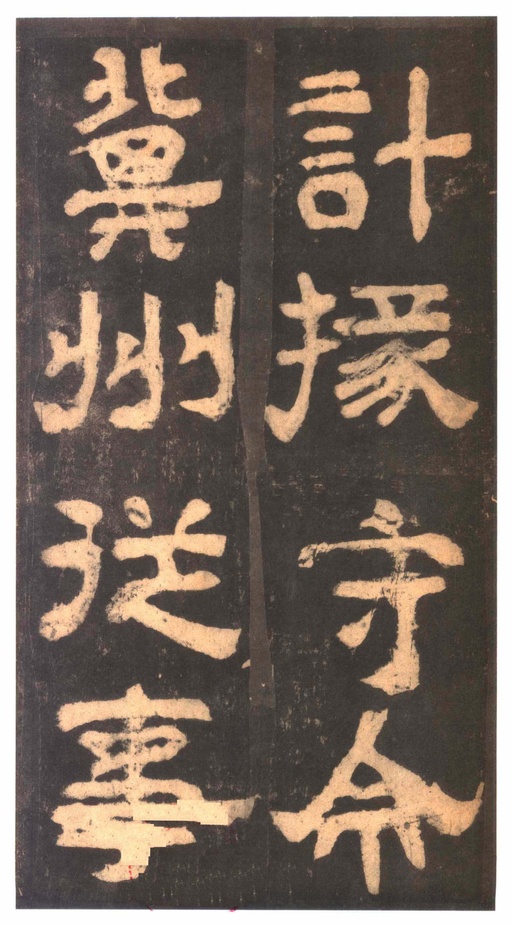 計掾守令
冀州従事